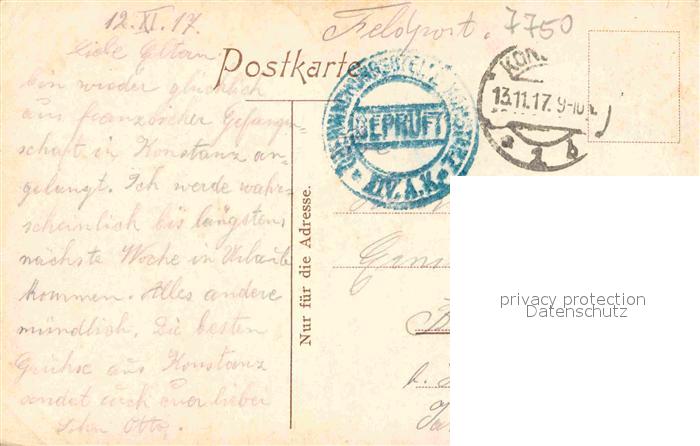 12. XI. 17.
Feldpost.
7750
Liebe Eltern
Postkarte
bin wieder glücklich
aus französicher Gefangen-
schaft in Konstanz an-
gelangt. Ich werde wahr-
scheinlich bis längstens
nächste Woche in Urlaub
kommen. Alles andere
mündlich. Die besten
Grüße aus Konstanz
sendet euch euer lieber
Sohn Otto.
Nur für die Adresse.
GEPRÜFT
XIV. A.K.
KONS
13.11.17. 9-10
* 2 b
privacy protection
Datenschutz